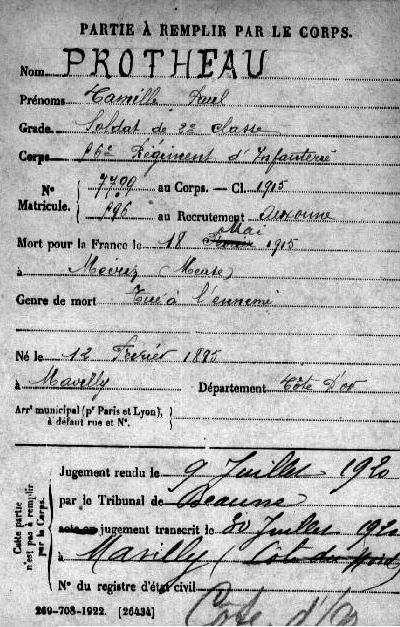 PARTIE À REMPLIR PAR LE CORPS.
Nom PROTHEAU
Prénoms Camille Paul
Grade Soldat de 2e classe
Corps 56e Régiment d'Infanterie
N° Matricule. { 7709 au Corps. — Cl. 1915
796 au Recrutement Auxonne
Mort pour la France le 18 Mai 1915
à (Meuse)
Genre de mort Tué à l'ennemi
Né le 12 Février 1895
à Mavilly Département Côte d'or
Arrt municipal (pr Paris et Lyon), à défaut rue et N°. }
Cette partie n'est pas à remplir par le Corps.
Jugement rendu le 9 Juillet 1920
par le Tribunal de Beaune
jugement transcrit le 20 Juillet 1920
à Mavilly (Côte du Nord)
N° du registre d'état civil
Côte d'Or
269-708-1922. [26434]